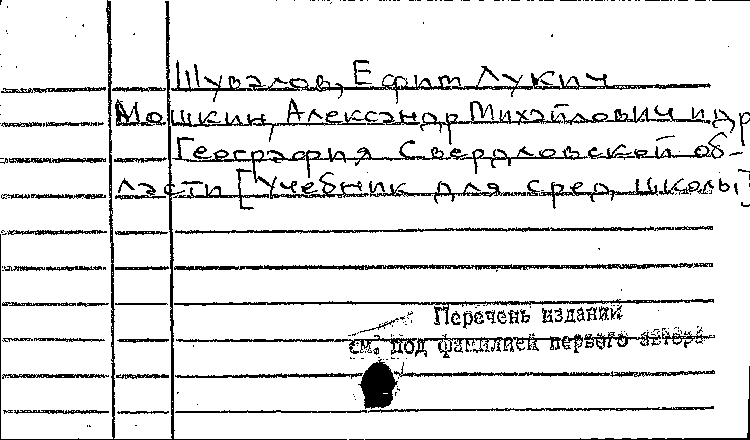 Шувалов, Ефим Лукич
Мошкин, Александр Михайлович и др
География Свердловской об-
ласти [Учебник для сред. школы]
Перечень изданий
см. под фамилией первого автора